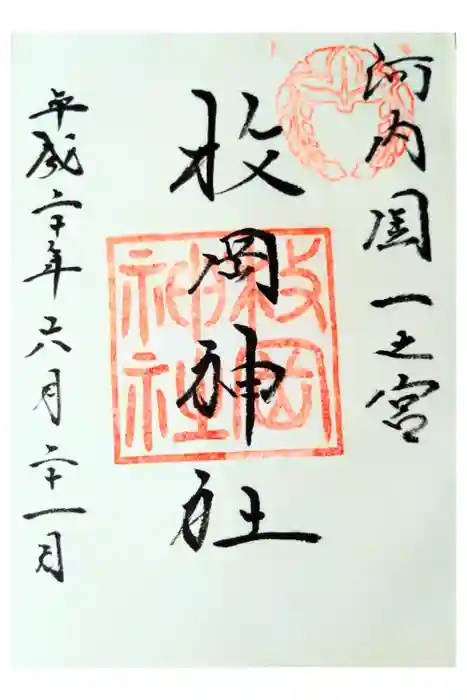 河内國一之宮
枚岡神社
平成二十年六月二十一日
枚岡
神社